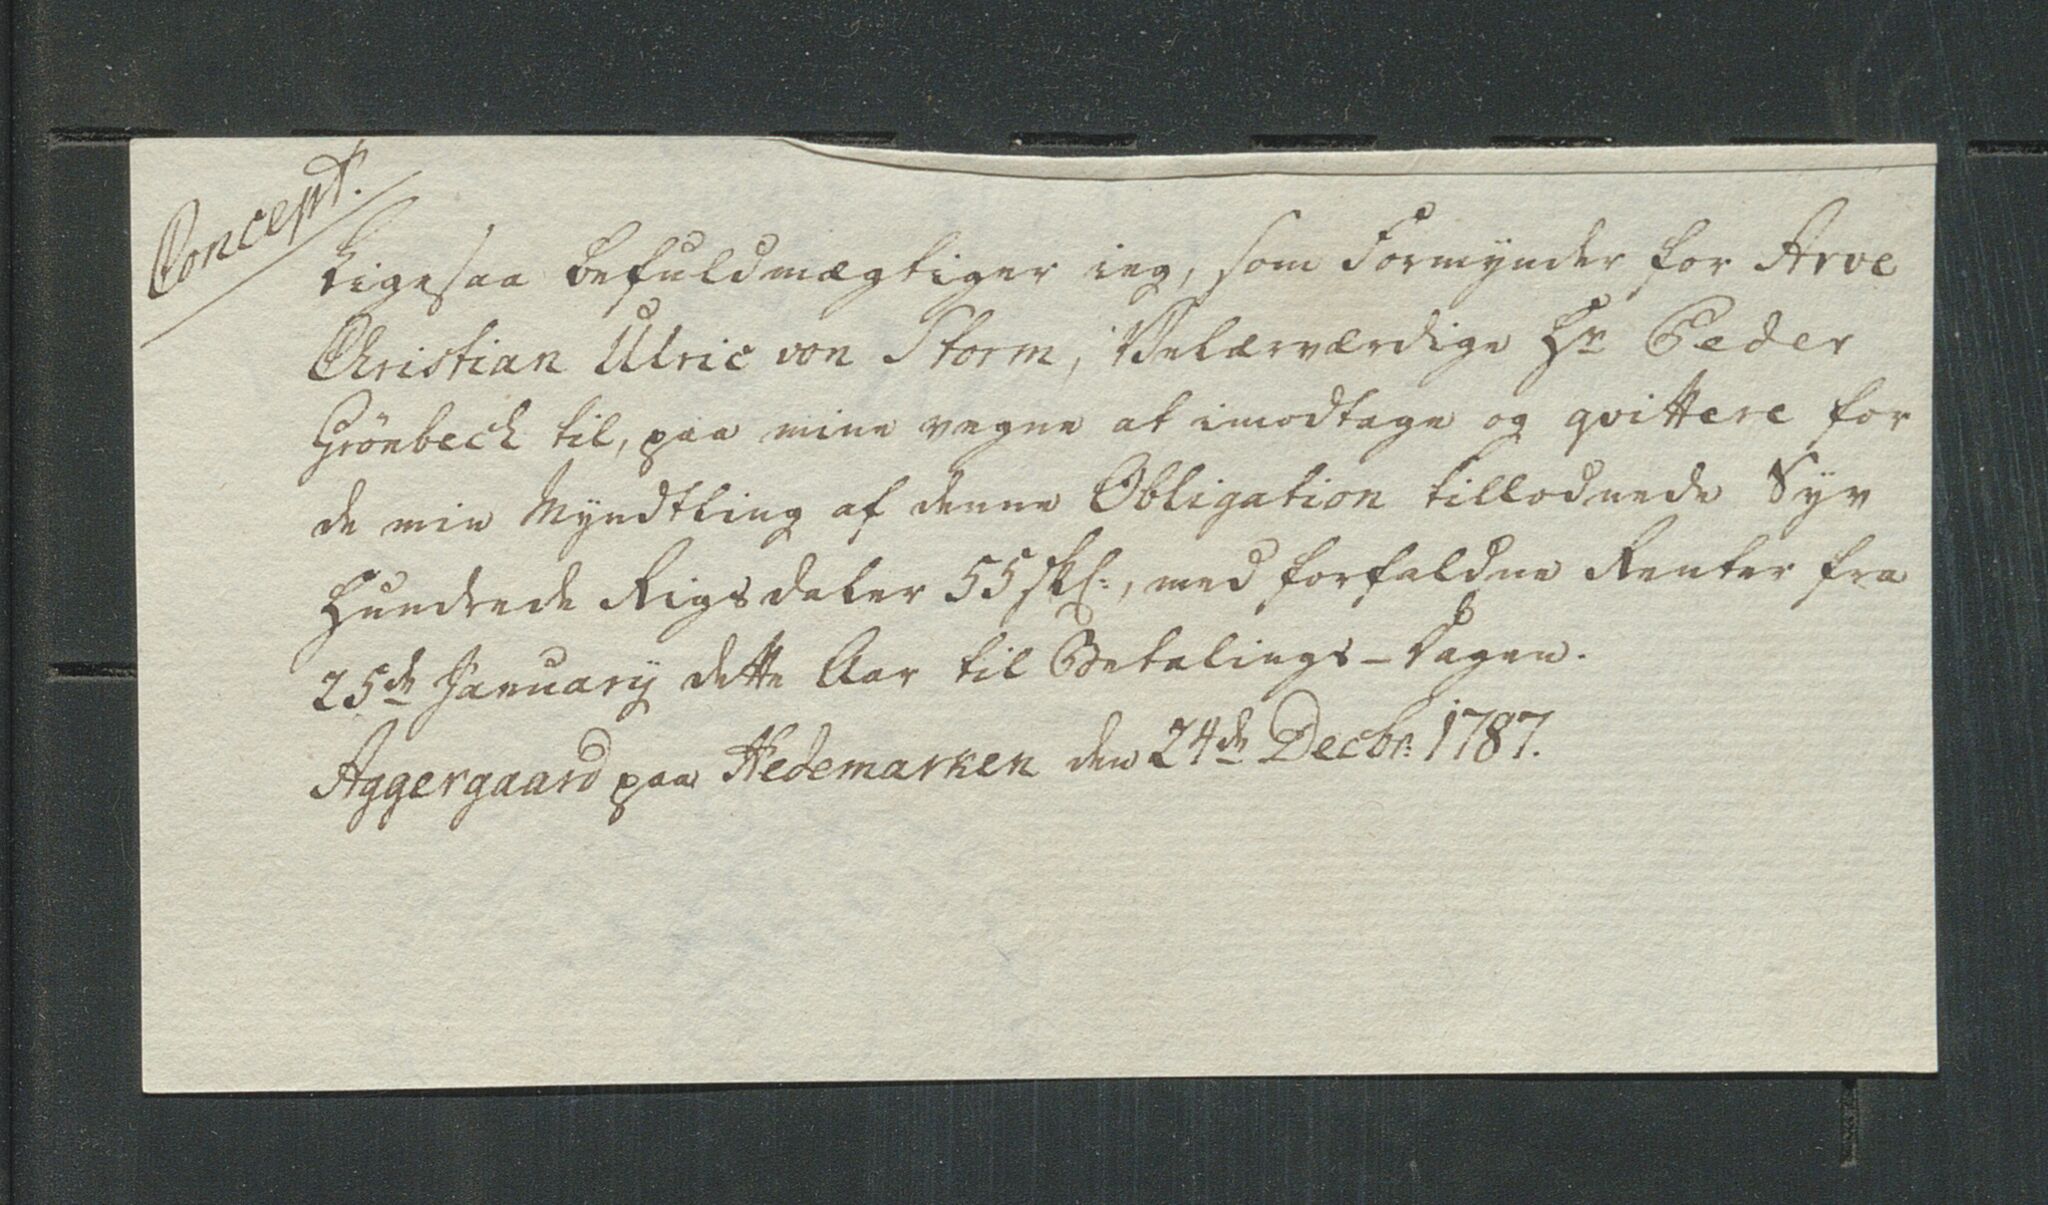 Concept.
Ligesaa befuldmægtiger ieg, som Formynder for Arve
Christian Ulric von Storm, Velærværdige Hr Peder
Grönbech til, paa mine vegne at imodtage og qvittere for
de min Myndtling af denne Obligation tillodnede Syv
Hundrede Rigsdaler 55 skl:, med forfaldne Renter fra
25de Januarij dette Aar til Betalings-Dagen.
Aggergaard paa Hedemarken den 24de Decbr: 1787.